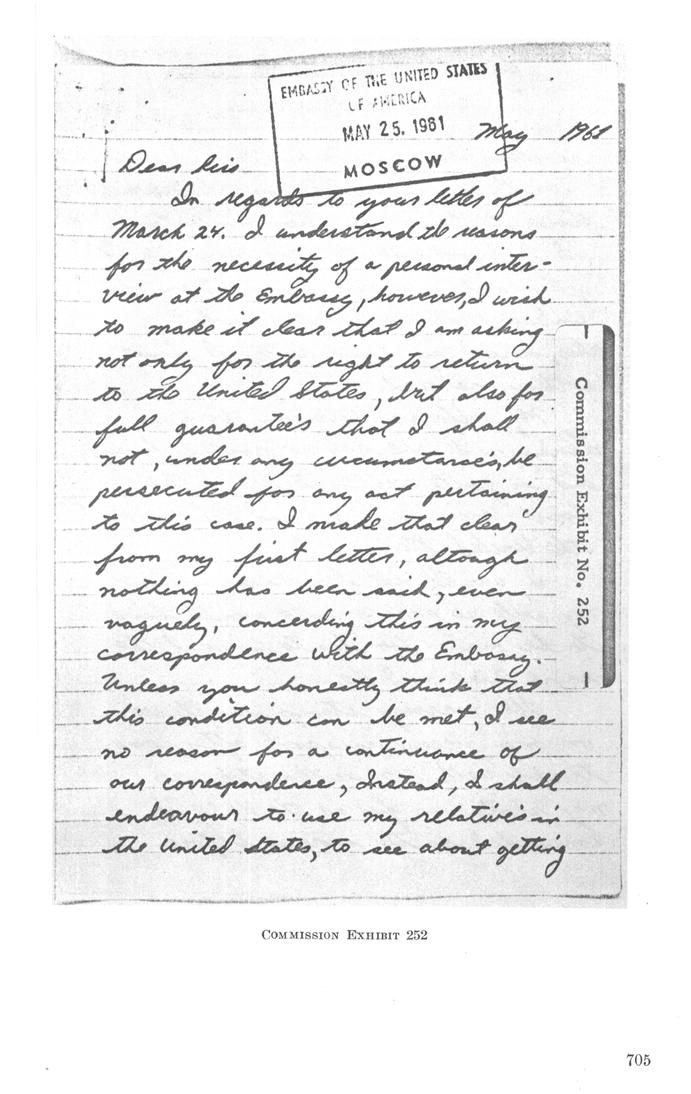 EMBASSY OF THE UNITED STATES
OF AMERICA
MAY 25, 1961
MOSCOW
May 1961
Dear Sirs
In regards to your letter of
March 24. I understand the reasons
for the necessity of a personal inter-
view at the Embassy, however, I wish
to make it clear that I am asking
not only for the right to return
to the United States, but also for
full guarantee's that I shall
not, under any circumstance's, be
persecuted for any act pertaining
to this case. I made that clear
from my first letter, altough
nothing has been said, even
vaguely, concerding this in my
correspondence with the Embassy.
Unless you honestly think that
this condition can be met, I see
no reason for a continuance of
our correspondence, Instead, I shall
endeavour to use my relative's in
the United States, to see about getting
Commission Exhibit No. 252
COMMISSION EXHIBIT 252
705